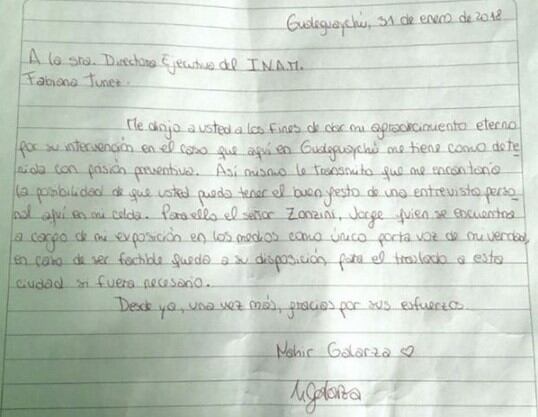 Gualeguaychú, 31 de enero de 2018
A la sra. Directora Ejecutiva del INAM.
Fabiana Tunez.
Me dirijo a usted a los fines de dar mi agradecimiento eterno
por su intervención en el caso que aquí en Gualeguaychú me tiene como dete
nida con prisión preventiva. Así mismo le transmito que me encantaría
la posibilidad de que usted pueda tener el buen gesto de una entrevista perso
nal aquí en mi celda. Para ello el señor Zonzini, Jorge quien se encuentra
a cargo de mi exposición en los medios como único porta voz de mi verdad,
en caso de ser factible queda a su disposición para el traslado a esta
ciudad si fuera necesario.
Desde ya, una vez más, gracias por sus esfuerzos.
Nahir Galarza ♡
NGalarza